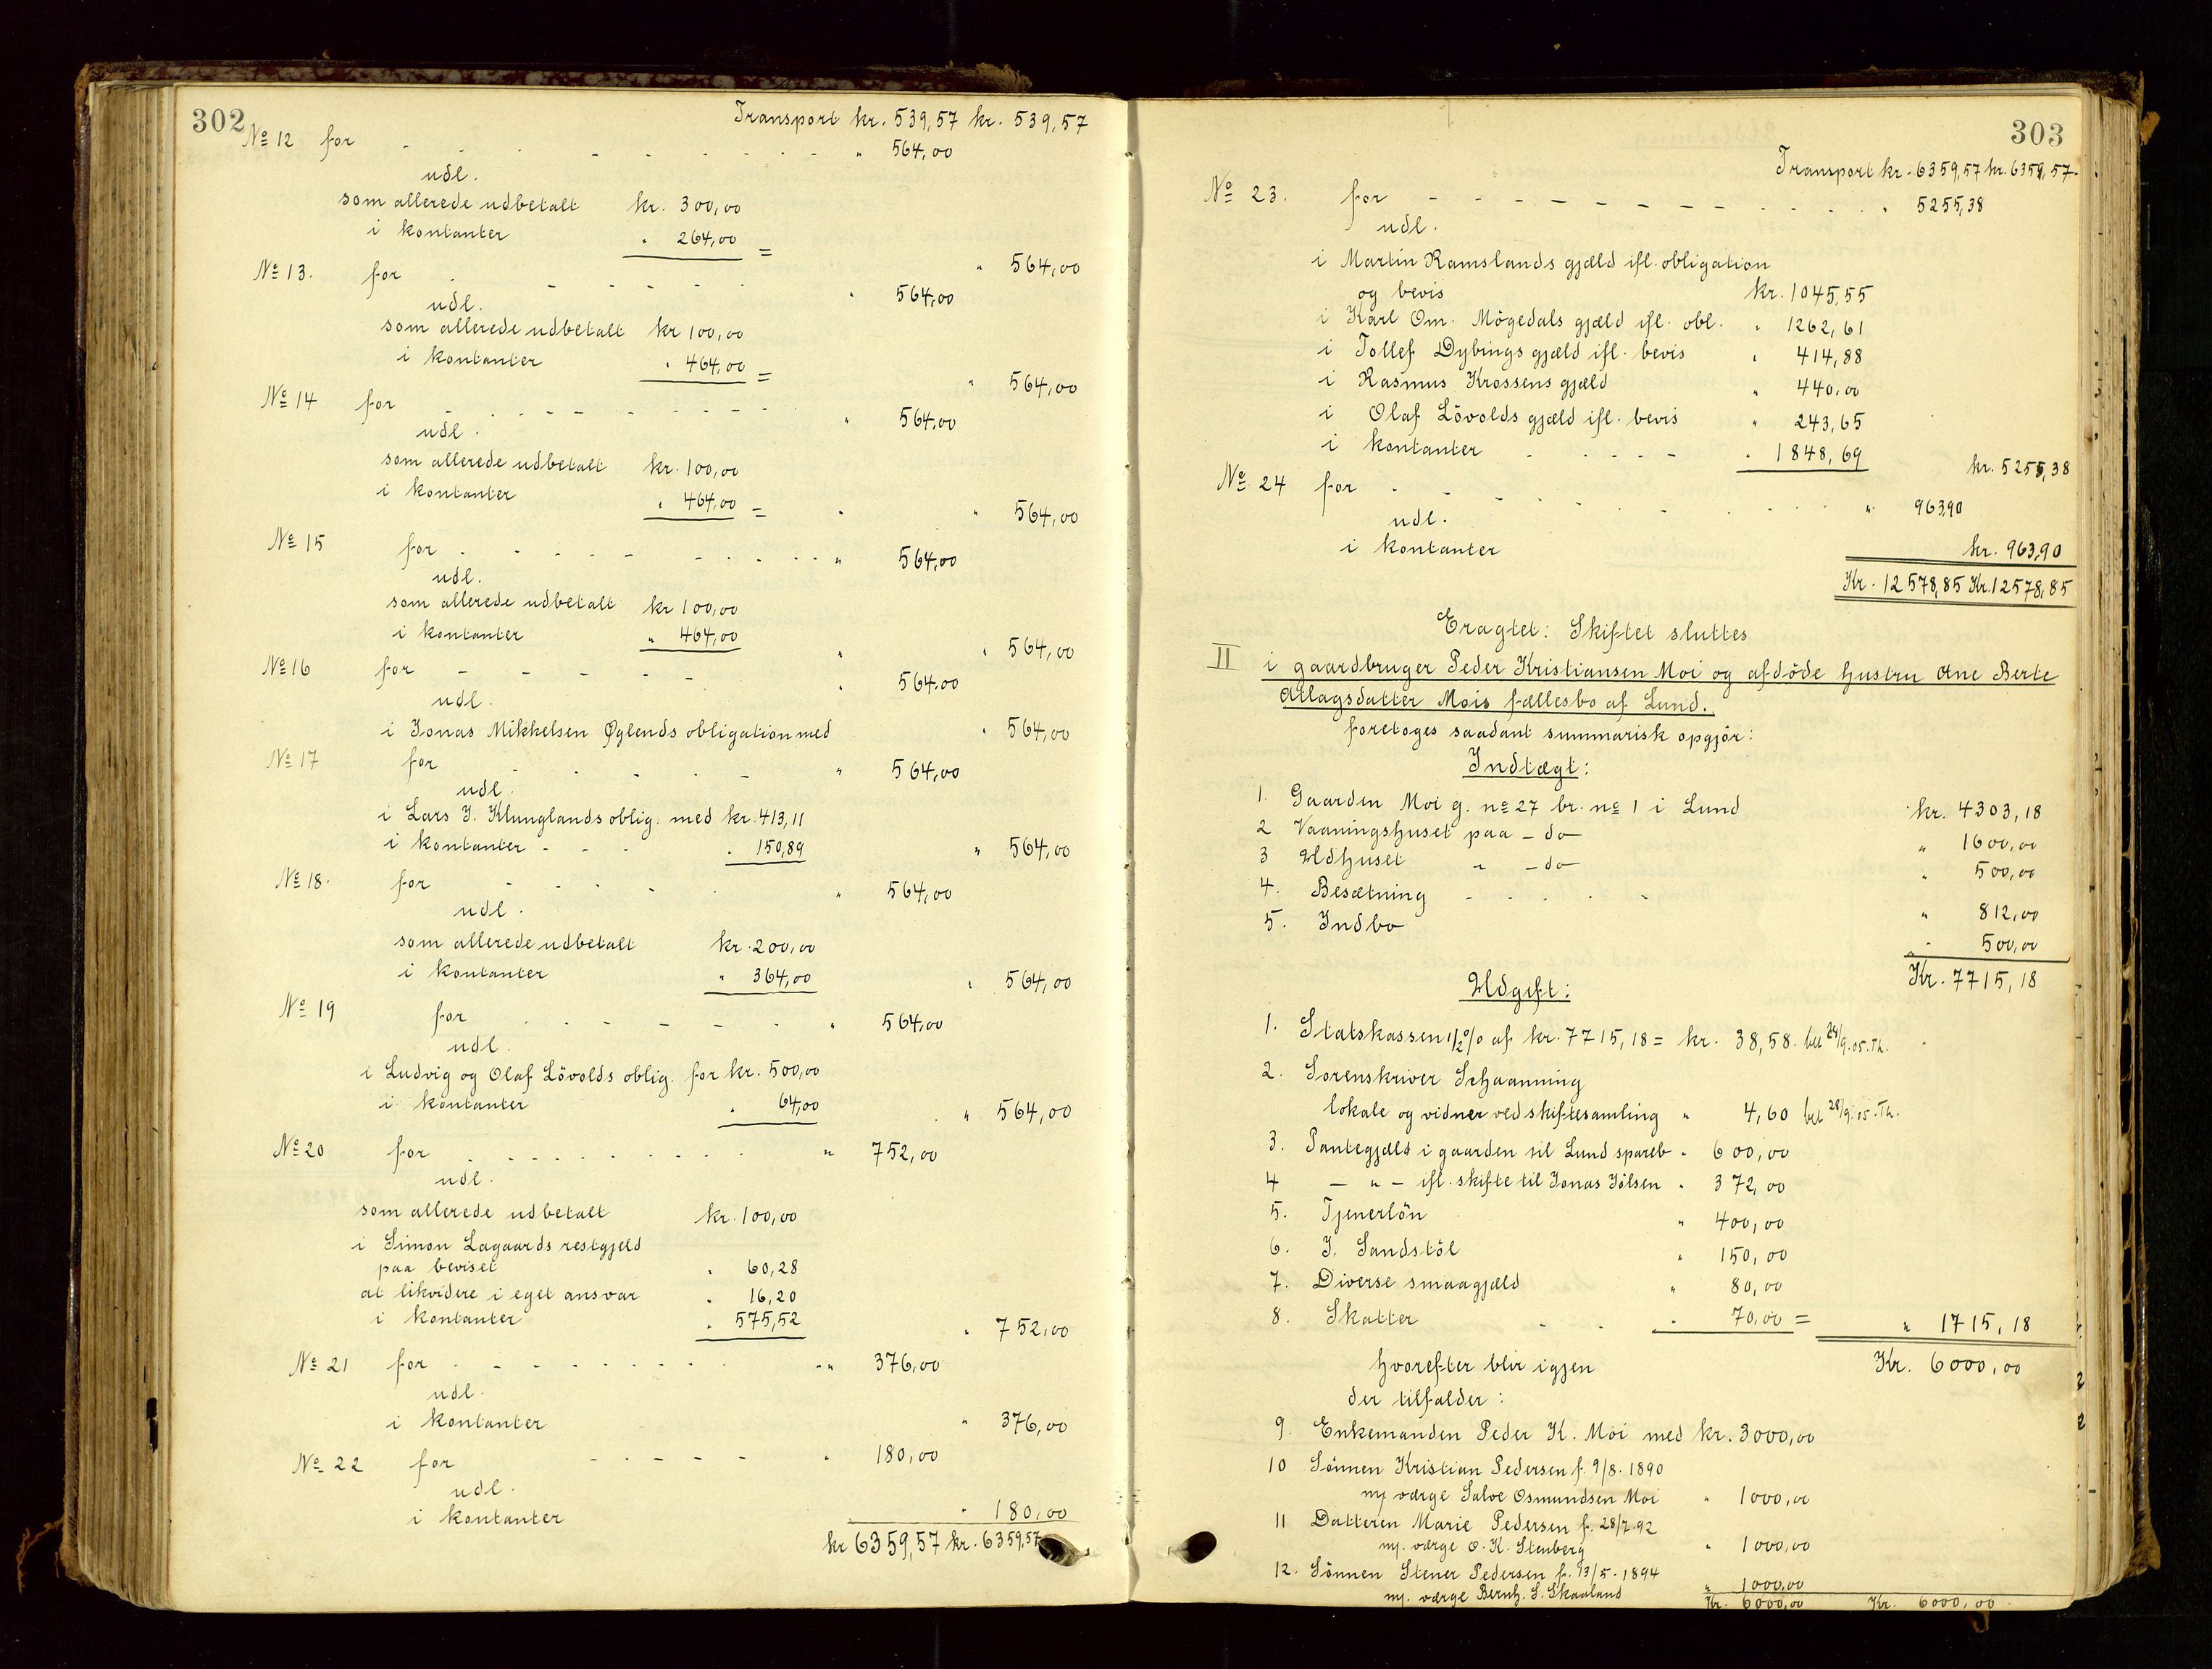 302
Transport kr. 539,57 kr. 539,57
No 12 for - - - - - - - - " 564,00
udl.
som allerede udbetalt kr. 300,00
i kontanter " 264,00 =
" 564,00
No 13. for - - - - - - " 564,00
udl.
som allerede udbetalt kr 100,00
i kontanter " 464,00 =
" 564,00
No 14 for - - - - - - - - " 564,00
udl.
som allerede udbetalt kr. 100,00
i kontanter " 464,00 = " " 564,00
No 15 for - - - - - - - - " 564,00
udl.
som allerede udbetalt kr 100,00
i kontanter " 464,00 " " 564,00
No 16 for - - - - - " 564,00
udl.
i Jonas Mikkelsen Øglends obligation med " 564,00
No 17 for - - - - - " 564,00
udl.
i Lars J. Klunglands oblig. med kr. 413,11
i kontanter - - - " 150,89 " 564,00
No 18. for - - - - - " 564,00
udl.
som allerede udbetalt kr. 200,00
i kontanter " 364,00 " 564,00
No 19 for - - - - - - " 564,00
udl.
i Ludvig og Olaf Lövolds oblig. for kr. 500,00
i kontanter " 64,00 " 564,00
No 20 for - - - - - - - - " 752,00
udl.
som allerede udbetalt kr. 100,00
i Simon Lagaards restgjeld
paa beviset " 60,28
at likvidere i eget ansvar " 16,20
i kontanter " 575,52 " 752,00
No 21 for - - - - - - - - " 376,00
udl.
i kontanter " 376,00
No 22 for - - - - - " 180,00
udl.
i kontanter " 180,00
kr 6359,57 kr. 6359,57
303
Transport kr. 6359,57 kr. 6359,57.
No 23. for - - - - - - - - - - " 5255,38
udl.
i Martin Ramslands gjæld ifl. obligation
og bevis kr. 1045,55
i Karl Om. Mögedals gjæld ifl. obl. " 1262,61
i Tollef Dybings gjæld ifl. bevis " 414,88
i Rasmus Krossens gjæld " 440,00
i Olaf Lövolds gjæld ifl. bevis " 243,65
i kontanter - - - - " 1848,69
kr. 5255,38
No 24 for - - - - - - - - " 963,90
udl.
i kontanter kr. 963,90
Kr. 12578,85 Kr. 12578,85
Eragtet: Skiftet sluttes
II i gaardbruger Peder Kristiansen Moi og afdöde hustru Ane Berte
Atlagsdatter Mois fællesbo af Lund.
foretoges saadant summarisk opgjör:
Indtægt:
1. Gaarden Moi g. no 27 br. no 1 i Lund kr. 4303,18
2 Vaaningshuset paa - do - " 1600,00
3 Udhuset " - do - " 500,00
4. Besætning - - - - - " 812,00
5. Indbo " 500,00
Kr. 7715,18
Udgift:
1. Statskassen 1/2 % af kr. 7715,18 = kr. 38,58. bet 28/9.05. Th.
2. Sorenskriver Schaanning
lokale og vidner ved skiftesamling " 4,60 bet 28/9.05. Th.
3. Pantegjæld i gaarden til Lund spareb. " 600,00
4 - " - ifl. skifte til Jonas Jölsen " 372,00
5. Tjenerlön " 400,00
6. J. Sandstöl " 150,00
7. Diverse smaagjæld " 80,00
8. Skatter - - " 70,00 = " 1715,18
hvorefter blir igjen Kr. 6000,00
der tilfalder:
9. Enkemanden Peder K. Moi med kr. 3000,00
10 Sönnen Kristian Pedersen f. 9/8. 1890
m/ værge Salve Osmundsen Moi " 1000,00
11 Datteren Marie Pedersen f. 28/7.92
m/. værge O. K. Stenberg " 1000,00
12. Sönnen Stener Pedersen f. 13/5. 1894 " 1000,00
m/. værge Bernh. S. Skaaland Kr. 6000,00 Kr. 6000,00.